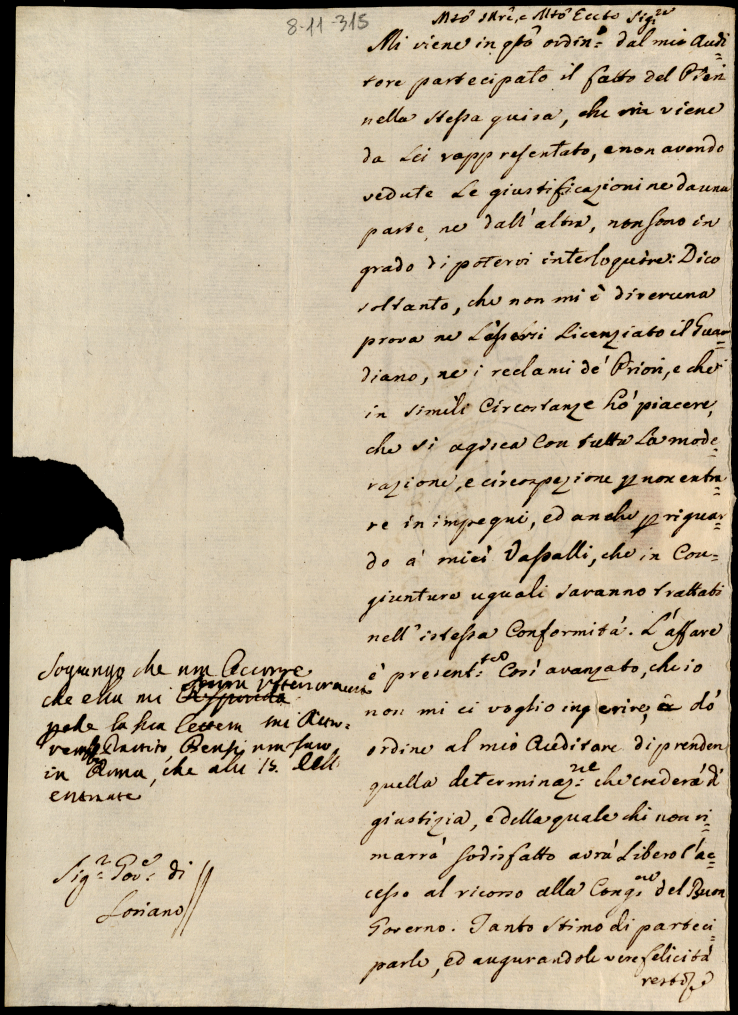 8-11-315
Mto Illre, e Mto Eccte Sigre
Mi viene in qsto ordin:o dal mio Audi=
tore partecipato il fatto del Pieri
nella stessa guisa, che mi viene
da Lei rappresentato, e non avendo
vedute Le giustificazioni ne da una
parte, ne dall'altra, non sono in
grado di potervi interloquire: Dico
soltanto, che non mi è di veruna
prova ne L'essersi Licenziato il Guar=
diano, ne i reclami de' Priori, e che
in simili Circostanze hò piacere,
che si agisca Con tutta La mode=
razione, e circospezione p non entra=
re in impegni, ed anche p riguar=
do a' miei Vassalli, che in Con=
giunture uguali saranno trattati
nell'istessa Conformità. L'affare
è present:teo Così avanzato, che io
non mi ci voglio ingerire, dò
ordine al mio Auditore di prender
quella determinaz:ne che crederà di
giustizia, e della quale chi non ri=
marrà sodisfatto avrà Libero l'ac=
cesso al ricorso alla Cong:ne del Buon
Governo. Tanto stimo di parteci=
parle, ed augurandole vere felicità
resto
Sogiungo che non Occorre
che ella mi ulteriormente
pche la sua lettera mi
in Roma, che alli 15. dell
entrante
Sig:r Gov:e di
Soriano